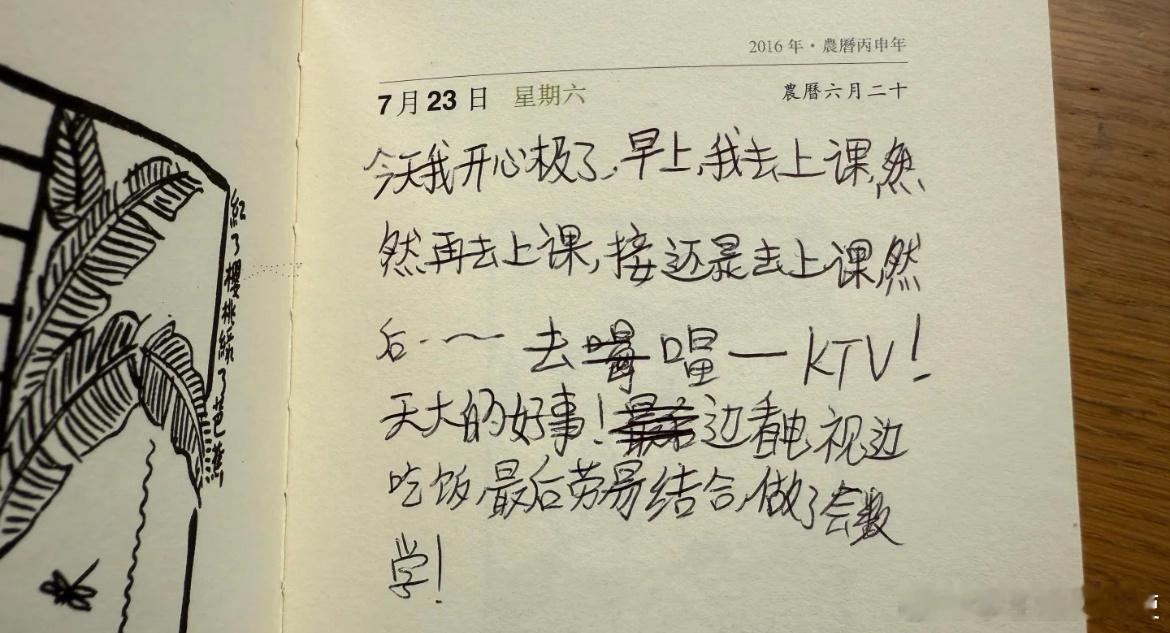 2016 年·農曆丙申年
7月23日 星期六 農曆六月二十
今天我开心极了,早上,我去上课,然
然再去上课,接还是去上课,然
后·~~ 去唱一KTV!
天大的好事!边看电视边
吃饭,最后劳易结合,做了会数
学!
紅了櫻桃綠了芭蕉